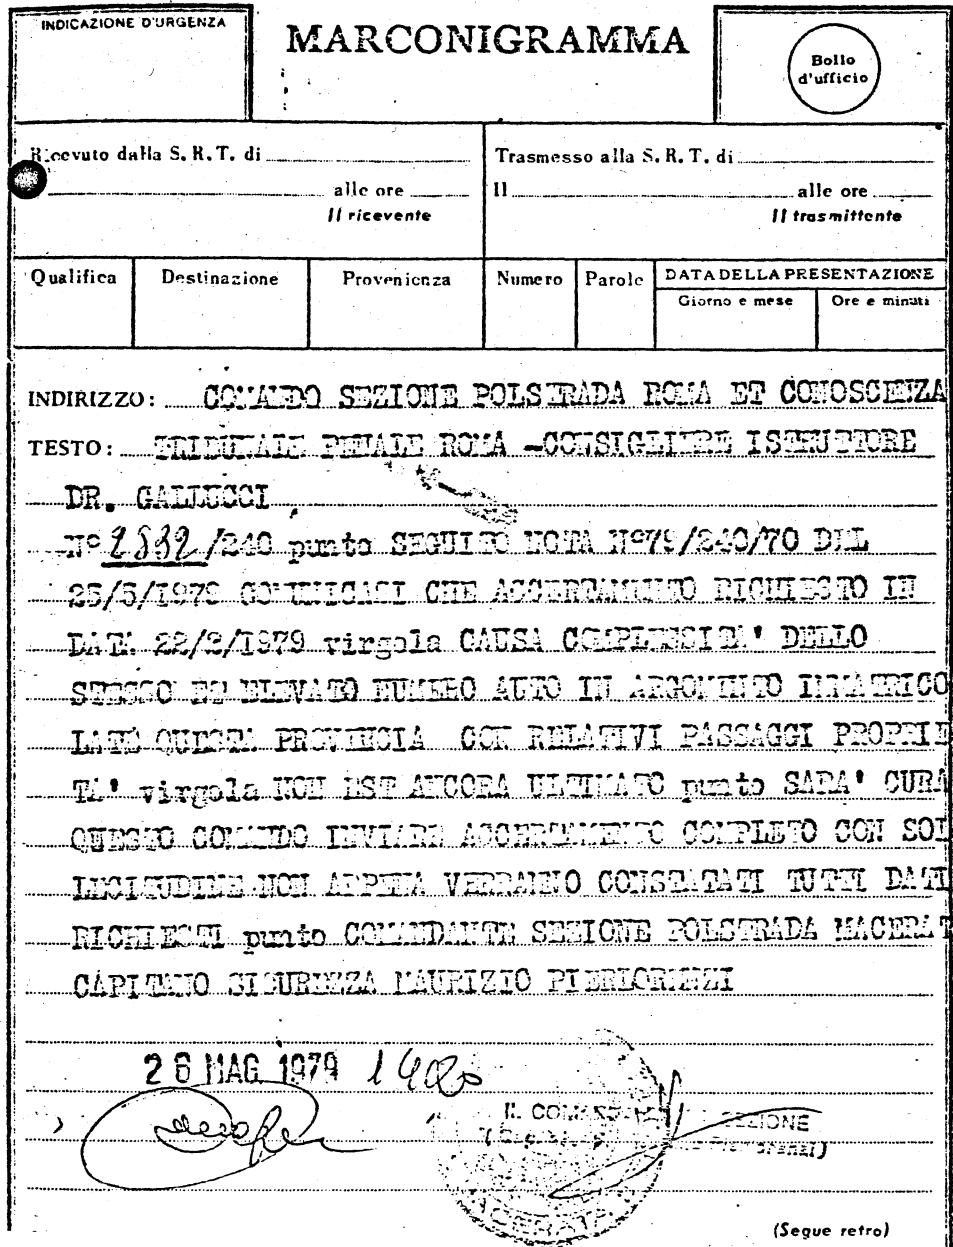 INDICAZIONE D'URGENZA
MARCONIGRAMMA
Bollo
d'ufficio
Ricevuto dalla S. R. T. di
Trasmesso alla S. R. T. di
alle ore
Il alle ore
Il ricevente
Il trasmittente
Qualifica Destinazione Provenienza Numero Parole DATA DELLA PRESENTAZIONE
Giorno e mese Ore e minuti
INDIRIZZO: COMANDO SEZIONE POLSTRADA ROMA ET CONOSCENZA
TESTO: TRIBUNALE PENALE ROMA -CONSIGLIERE ISTRUTTORE
DR. GALLUCCI
N° 2832/240 punto SEGUITO NOTA N°79/240/70 DEL
25/5/1979 COMUNICASI CHE ACCERTAMENTO RICHIESTO IN
DATA 22/2/1979 virgola CAUSA COMPLESSITA' DELLO
STESSO ET ELEVATO NUMERO AUTO IN ARGOMENTO IMMATRICO
LATE QUESTA PROVINCIA CON RELATIVI PASSAGGI PROPRIE
TA' virgola NON EST ANCORA ULTIMATO punto SARA' CURA
QUESTO COMANDO INVIARE ACCERTAMENTO COMPLETO CON SOL
LECITUDINE NON APPENA VERRANNO CONSTATATI TUTTI DATI
RICHIESTI punto COMANDANTE SEZIONE POLSTRADA MACERAT
CAPITANO SICUREZZA MAURIZIO PIERLORENZI
26 MAG. 1979 1400
IL SEZIONE
MACERATA
(Segue retro)